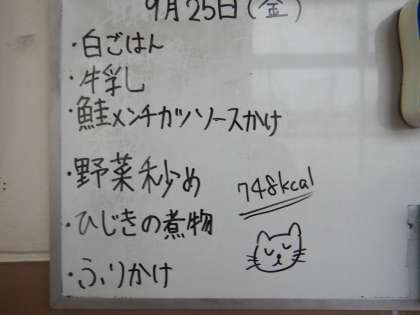 9月25日(金)
・白ごはん
・牛乳
・鮭メンチカツソースかけ
・野菜炒め
・ひじきの煮物
・ふりかけ
748kcal